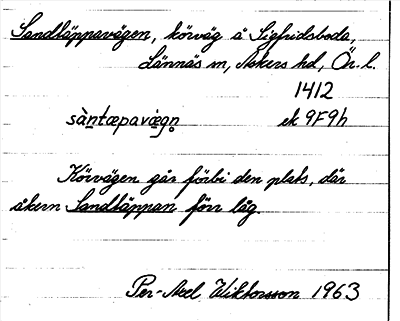 Sandtäppavägen, körväg å Sigfridsboda,
Lännäs sn, Askers hd, Ör. l.
1412
sàntæpavægn̥ ek 9F9h
Körvägen går förbi den plats, där
åkern Sandtäppan förr låg.
Per-Axel Wiktorsson 1963